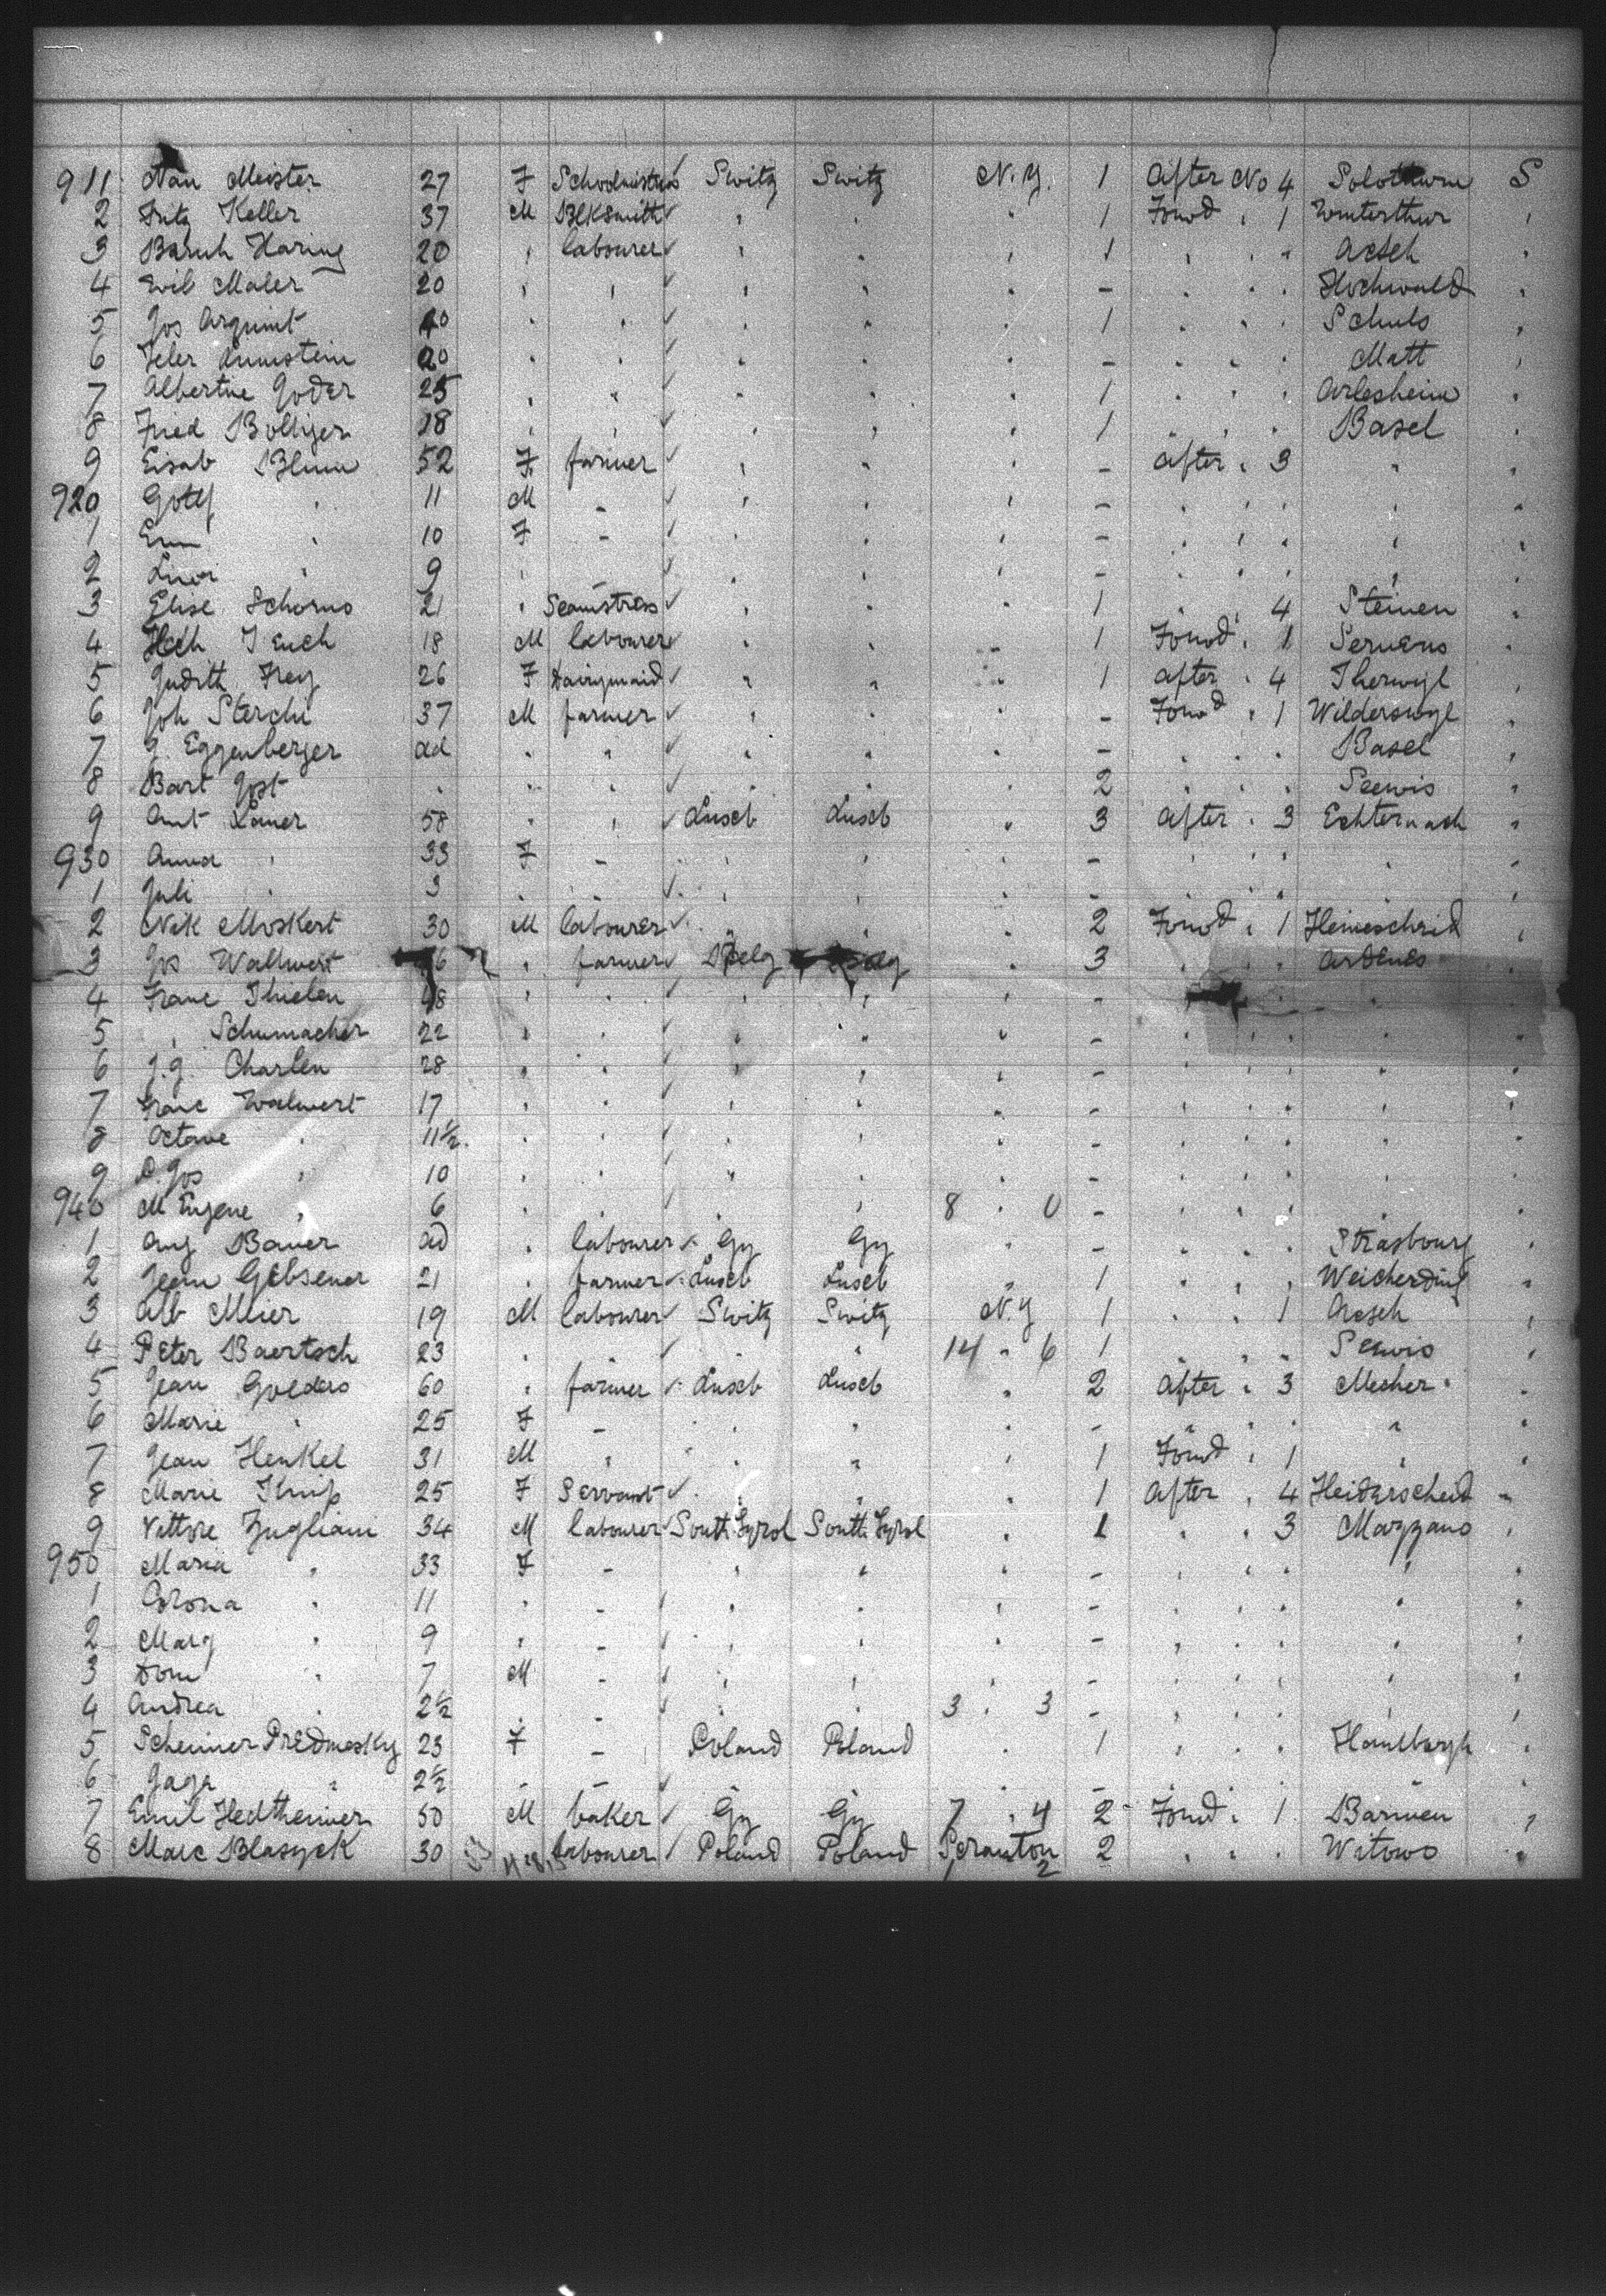 911 Nan Meister 27 F Schoolmistress Switz Switz N.Y. 1 After No 4 Solothurn S
2 Fritz Keller 37 M Blksmith " " " 1 Forwd " 1 Winterthur "
3 Baruh Haring 20 " labourer " " " 1 " " " Aesch "
4 Emil Maler 20 " " " " " - " " " Hochwald "
5 Jos Arquint 40 " " " " " 1 " " " Schuls "
6 20 " " " " " - " " " Matt "
7 Albertine Goder 25 " " " " " 1 " " " Arlesheim "
8 Fried Bolliger 18 " " " " " 1 " " " Basel "
9 Eisab Blum 52 F farmer " " " - After " 3 " "
920 Gotlf " 11 M - " " " - " " " " "
1 Em " 10 F - " " " - " " " " "
2 " 9 " - " " " - " " " " "
3 Elise Schorno 21 " Seamstress " " " 1 " " 4 Steinen "
4 18 M labourer " " " 1 Forwd " 1 "
5 Judith Frey 26 F Dairymaid " " " 1 After " 4 Therwyl "
6 Joh Sterchi 37 M farmer " " " - Forwd " 1 Wilderswyl "
7 J. Eggenberger ad " " " " " - " " " Basel "
8 Bart Jost " " " " " " 2 " " " Seewis "
9 Ant Lauer 58 " " Luxb Luxb " 3 After " 3 Echternach "
930 Anna " 33 F - " " " - " " " " "
1 Juli " 3 " - " " " - " " " " "
2 Nik Moskert 30 M labourer " " " 2 Forwd " 1 "
3 Jos Wallwert 46 " farmer Belg Belg " 3 " " " Ardenes "
4 Franc Thielen 48 " " " " " - " " " " "
5 " Schumacher 22 " " " " " - " " " " "
6 J.J. Charlen 28 " " " " " - " " " " "
7 Franc Walwert 17 " " " " " - " " " " "
8 Octave " 11½ " " " " " - " " " " "
9 D. Jos " 10 " " " " " - " " " " "
940 M Eugene " 6 " " " " 8 " 0 - " " " " "
1 Aug Bauer ad " labourer Gy Gy " - " " " Strasbourg "
2 Jean 21 " farmer Luxb Luxb " 1 " " " Weicherding "
3 Alb Meier 19 M labourer Switz Switz N.Y 1 " " 1 Aesch "
4 Peter Baertsch 23 " " " " 14 " 6 1 " " " Seewis "
5 Jean Golders 60 " farmer Luxb Luxb " 2 After " 3 Mecher "
6 Marie " 25 F - " " " - " " " " "
7 Jean Henkel 31 M " " " " 1 Forwd " 1 " "
8 Marie Knip 25 F Servant " " " 1 After " 4 Heiderscheid "
9 Vittore Zugliani 34 M labourer South Tyrol South Tyrol " 1 " " 3 Mazzano "
950 Maria " 33 F - " " " - " " " " "
1 Corona " 11 " - " " " - " " " " "
2 Marg " 9 " - " " " - " " " " "
3 Dom " 7 M - " " " - " " " " "
4 Andrea " 2½ " - " " 3 " 3 - " " " " "
5 Scheimer Predmesky 23 F - Poland Poland " 1 " " " Hamburgh "
6 Gaga " 2½ " - " " " - " " " " "
7 Emil Hedtheimer 50 M baker Gy Gy 7 " 4 2 Forwd " 1 Barmen "
8 Marc Blasyck 30 labourer Poland Poland Scranton 2 " " " Witowo "
2